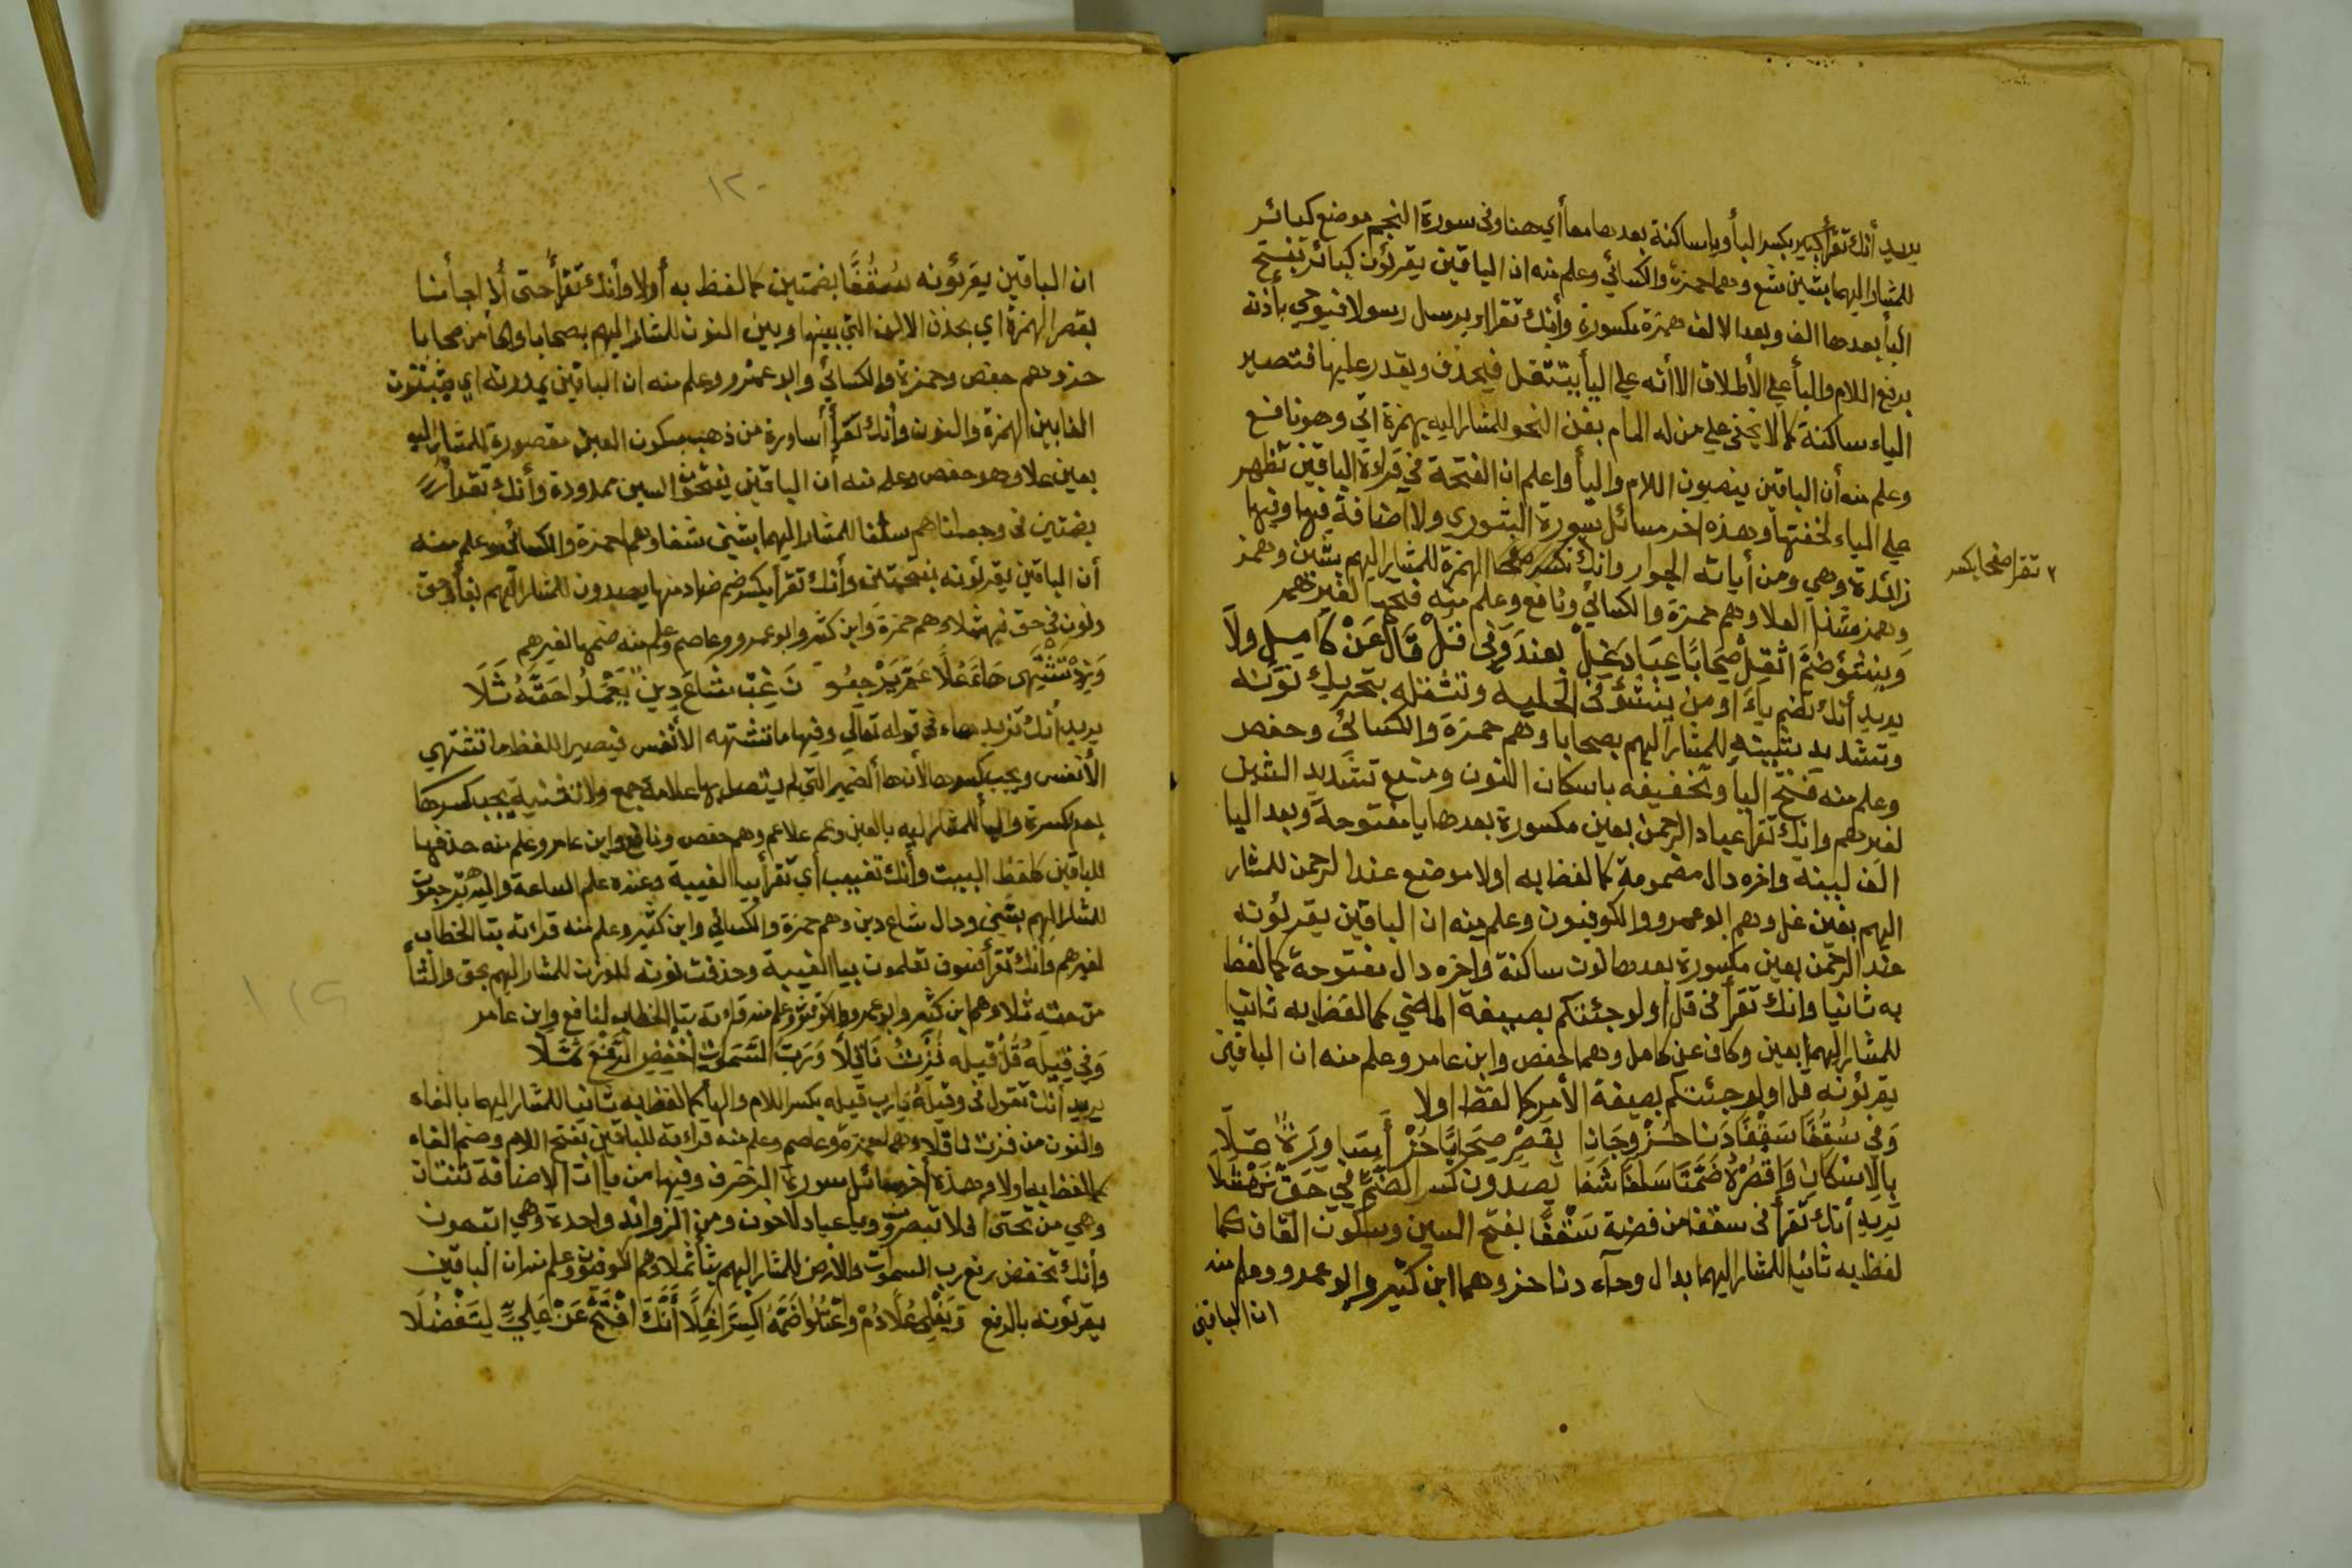 يريد أنك تقرأ كبير بكسر البأ ويإ ساكنة بعدها معا أي هنا وفى سورة النجم موضع كبائر
للمشار اليهما بشين شع وهما حمزة والكسائي وعلم منه ان الباقين يقرئون كبائر بفتح
البأ بعدها الف وبعد الالف همزة مكسورة وأنك تقرا او يرسل رسولا فيوحي بأذنه
برفع اللام واليأ علي الأطلاق الا أنه علي اليأ يتثقل فيحذف ويقدر عليها فتصير
الياء ساكنة كما لا يخفى علي من له المام بفن النحو للمشار اليه بهمزة اتي وهو نافع
وعلم منه أن الباقين ينصبون اللام واليأ واعلم ان الفتحة في قراءة الباقين تظهر
علي الياء لخفتها وهذه اخر مسائل سورة الشوري ولا اضافة فيها وفيها
زائدة وهي ومن أياته الجوار وانك بكسر الهمزة للمشار اليهم بشين وهمز
وهمز شذا العلا وهم حمزة والكسائي ونافع وعلم منه فتحها لغيرهم
وينشؤ ضم اثقل صحابا عباد غيل بعند وفى قل قال عن كامل ولا
يريد أنك تضم ياء او من ينشؤ فى الحلية وتثقله بتحريك نونه
وتشديد شينه للمشار اليهم بصحابا وهم حمزة والكسائي وحفص
وعلم منه فتح اليا وتخفيفه باسكان النون ومنع تشديد الشين
لغيرهم وانك تقرأ عباد الرحمن بعين مكسورة بعدها با مفتوحة وبعد البا
الف لينة واخره دال مضمومة كما لفظ به اولا موضع عند الرحمن للمشار
اليهم بغين غل وهم ابو عمرو والكوفيون وعلم منه ان الباقين يقرئونه
عند الرحمن بعين مكسورة بعدها نون ساكنة واخره دال مفتوحة كما لفظ
به ثانيا وانك تقرأ فى قل أولو جئتكم بصيغة الماضي كما لفظ به ثانيا
للمشار اليهما بعين وكاف عن كامل وهما حفص وابن عامر وعلم منه ان الباقين
يقرئونه قل اولو جئتكم بصيغة الأمر كما لفظ اولا
وفى سقفا سقفا دنا حز وجانا بقصر صحابا حز أسا ورة علا
بالاسكان واقصره ضمتا سلفا شفا يصدون كسر الضم في حق نهشلا
يريد أنك تقرأ فى سقفا من فضة سقفا بفتح السين وسكون القاف كما
لفظ به ثانيا للمشار اليهما بدال وحآء دنا حز وهما ابن كثير وابو عمرو وعلم منه
ان الباقين
٢ تقرا صفحا بكسر
١٢٠
ان الباقين يقرئونه سقفا بضمتين كما لفظ به أولا وأنك تقرأ حتى أذا جاءنا
بقصر الهمزة اي بحذف الالف التي بينها وبين النون للمشار اليهم بصحابا وحا من صحابا
حز وهم حفص وحمزة والكسائي وابو عمرو وعلم منه ان الباقين يمدونه اي يثبتون
الفا بين الهمزة والنون وأنك تقرأ أساورة من ذهب بسكون السين مقصورة للمشار اليه
بعين علا وهو حفص وعلم منه أن الباقين يفتحون السين ممدودة وأنك تقرأ
بضمتين فى وجعلناهم سلفا للمشار اليهما بشين شفا وهما حمزة والكسائي وعلم منه
أن الباقين يقرئونه بفتحتين وأنك تقرأ بكسر ضم صاد منها يصدون للمشار اليهم بفأ وحق
ونون في حق نهشلا وهم حمزة وابن كثير وابو عمرو وعاصم وعلم منه ضمها لغيرهم
وزد تشتهى هاء علا عم يرجعو ن غب شاع دين يعملوا حقه ثلا
يريد أنك تزيد هاء فى قوله تعالي وفيها ما تشتهه الأنفس فيصير اللفظ ما تشتهي
الأنفس ويجب كسرها لأن ها الضمير التي لم يتصل بها علامة جمع ولا تثنية يجب كسرها
بعد كسرة واليأ للمشار اليه بالعين وعم علا عم وهم حفص ونافع وابن عامر وعلم منه حذفها
للباقين كلفظ البيت وأنك تغيب أي تقرأ بيا الغيبة وعنده علم الساعة واليه ترجعون
للمشار اليهم بشين ودال شاع دين وهم حمزة والكسائي وابن كثير وعلم منه قرائه بتا الخطاب
لغيرهم وانك تقرأ فسوف تعلمون بيا الغيبة وحذفت نونه للوزن للمشار اليهم بحق والثأ
من حقه ثلا وهم ابن كثير وابو عمرو والكوفيون وعلم منه قراءته بتا الخطاب لنافع وابن عامر
وفي قيله قل قيله فزت ناقلا ورب السموت اخفض الرفع ثملا
يريد أنك تقول فى وقيله يارب قيله بكسر اللام والهأ كما لفظ به ثانيا للمشار اليهما بالفاء
والنون من فزت ناقلا وهما حمزة وعاصم وعلم منه قراءته للباقين بفتح اللام وضم الهاء
كما لفظ به اولا وهذه أخر مسائل سورة الزخرف وفيها من ياات الاضافة ثنتان
وهي من تحتى افلا تبصرون ويا عباد لا خوف ومن الزوائد واحدة وهي اتبعون
وأنك تخفض رفع رب السموت والأرض للمشار اليهم بثأ ثملا وهم الكوفيون وعلم منه ان الباقين
يقرئونه بالرفع ويغلي علا دم واعتلوا ضمه اكسرا غلا أنك افتح عن علي ليتفضلا
١٢٩